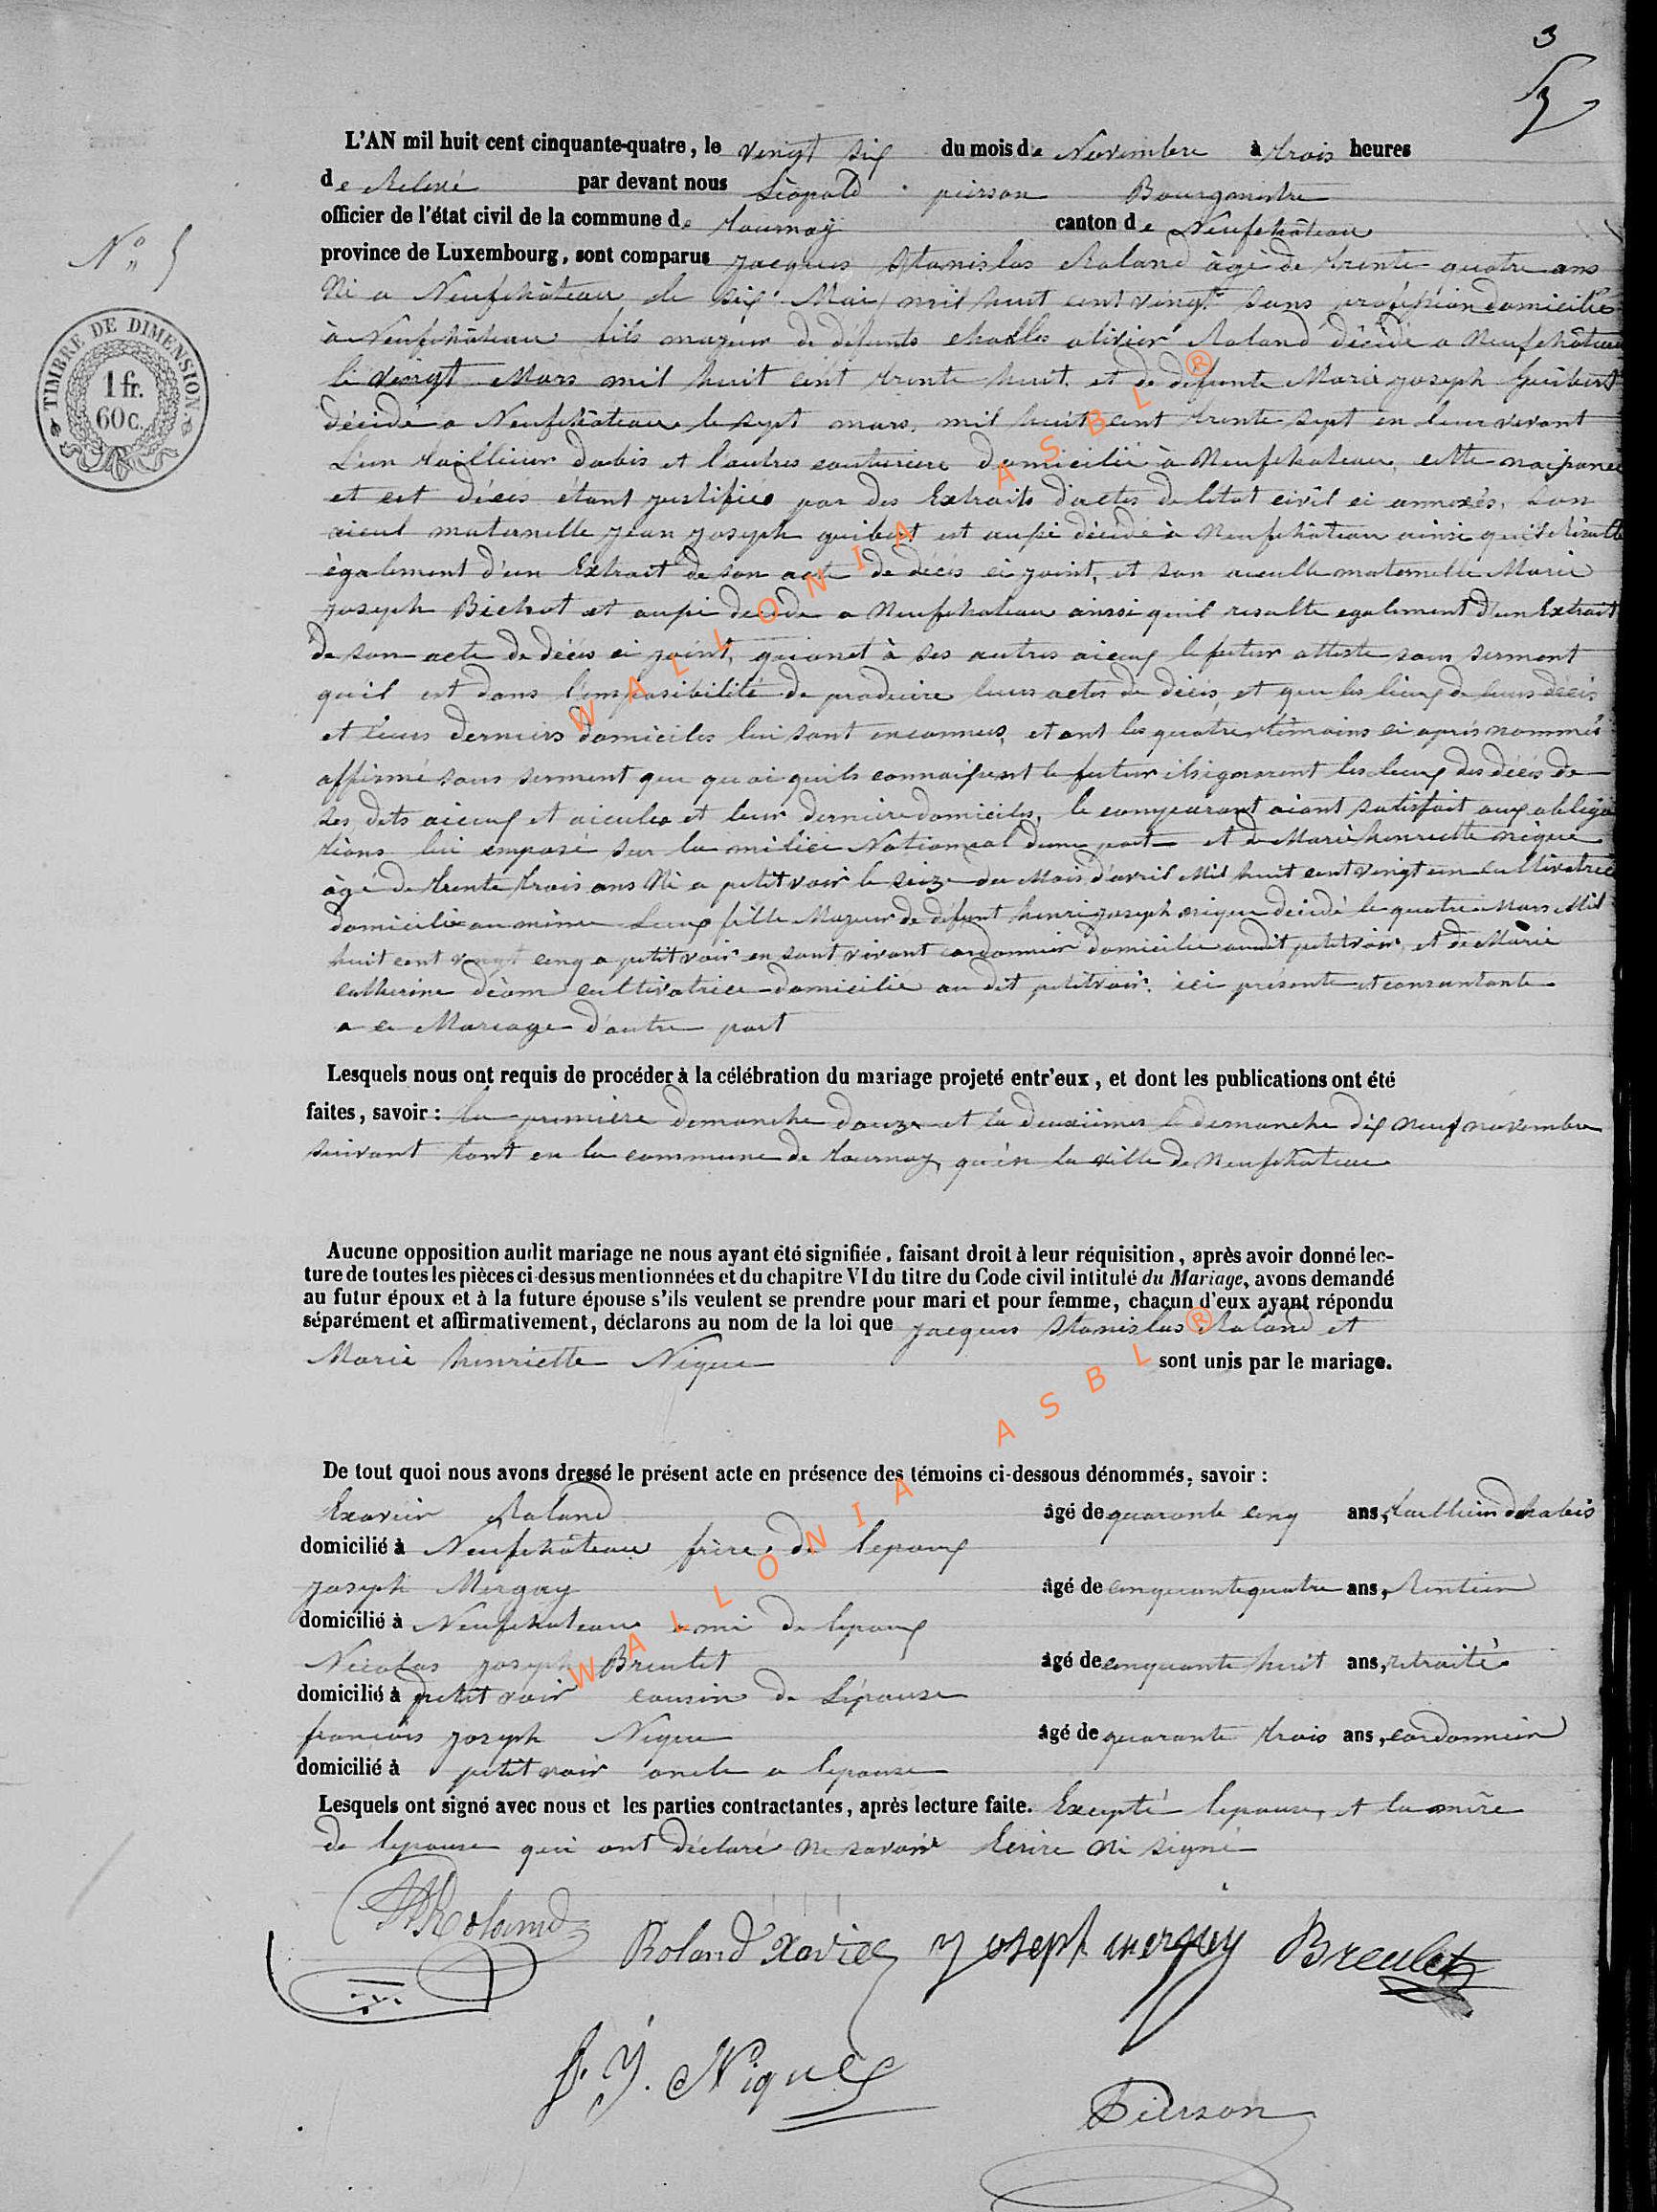 3
L'AN mil huit cent cinquante-quatre, le vingt six du mois de Novembre à trois heures
de Relevé par devant nous Léopold pierson Bourgmestre
officier de l'état civil de la commune de tournay canton de Neufchâteau
province de Luxembourg, sont comparus jacques Stanislas Roland âgé de trente quatre ans
N° 5
Né a Neufchâteau le six Mai mil huit cent vingt sans profession domicilié
TIMBRE DE DIMENSION.
1 fr.
60 c.
à Neufchâteau fils majeur de défunts charles olivier Roland décédé a Neufchâteau
le vingt Mars mil huit cent trente huit et de défunte Marie joseph Guibert
décédé a Neufchâteau le sept mars mil huit cent trente sept en leur vivant
L'un tailleur dabis et l'autres couturiere domicilié à Neufchateau, cette naissance
et cet décès étant justifiée par des Extraits d'actes de létat civil ci annexés. Son
aieul maternelle jean joseph guibert est aussi décédé à Neufchâteau ainsi qu'il résulte
également d'un Extrait de son acte de décès ci joint, et son aieulle maternelle Marie
joseph Bichot est aussi décédé a Neufchateau ainssi quil resulte egalement d'un Extrait
de son acte de décès ci joint, quant à ses autres aieux le futur atteste sous serment
quil est dans l'imposibilité de produire leurs actes de décès, et que les lieux de leurs décès
et leurs derniers domiciles lui sont inconnus, et ont les quatres témoins ci après nommés
affirmé sous serment que quoi quils connaissent le futur ils ignorent les lieux des décès de
ses dits aieux et aieules et leur derniere domiciles, le comparant aiant satisfait aux obliga
tions lui imposé sur la milice National d'une part et de Marie henriette nique
âgé de trente trois ans Né a petitvoir le seize du Mois d'avril Mil huit cent vingt un cultivatrice
domicilié au même Lieux fille Majeur de défunt henri joseph nique décédé le quatre Mars Mil
huit cent vingt cinq a petitvoir en sont vivant cordonnier domicilié audit petitvoir, et de Marie
catherine déom cultivatrice domicilié au dit petitvoir. ici présente et consantante
a ce Mariage d'autre part
Lesquels nous ont requis de procéder à la célébration du mariage projeté entr'eux, et dont les publications ont été
faites, savoir : la première demanche douze et la deuxiimes le demanche dix neuf novembre
suivant tant en la commune de tournay, qu'én la ville de Neufchâteau
Aucune opposition audit mariage ne nous ayant été signifiée, faisant droit à leur réquisition, après avoir donné lec-
ture de toutes les pièces ci-dessus mentionnées et du chapitre VI du titre du Code civil intitulé du Mariage, avons demandé
au futur époux et à la future épouse s'ils veulent se prendre pour mari et pour femme, chacun d'eux ayant répondu
séparément et affirmativement, déclarons au nom de la loi que jacques Stanislas Roland et
Marie henriette Nique sont unis par le mariage.
De tout quoi nous avons dressé le présent acte en présence des témoins ci-dessous dénommés, savoir :
Exavier Roland âgé de quarante cinq ans, tailleur dhabis
domicilié à Neufchâteau frère de lepoux
joseph Mergay âgé de cinquante quatre ans, Rentier
domicilié à Neufchateau ami de lepoux
Nicolas joseph Breulet âgé de cinquante huit ans, retraité
domicilié à petit voir cousin de Lépouse
francois joseph Nique âgé de quarante trois ans, cordonnier
domicilié à petit voir oncle a lepouse
Lesquels ont signé avec nous et les parties contractantes, après lecture faite. Excepté lepouse, et la mère
de lepouse qui ont déclaré ne savoir Ecrire Ni signé
Roland
Roland Xavier joseph mergay Breulet
f. J. Nique
Pierson
WALLONIA ASBL ®
WALLONIA ASBL ®